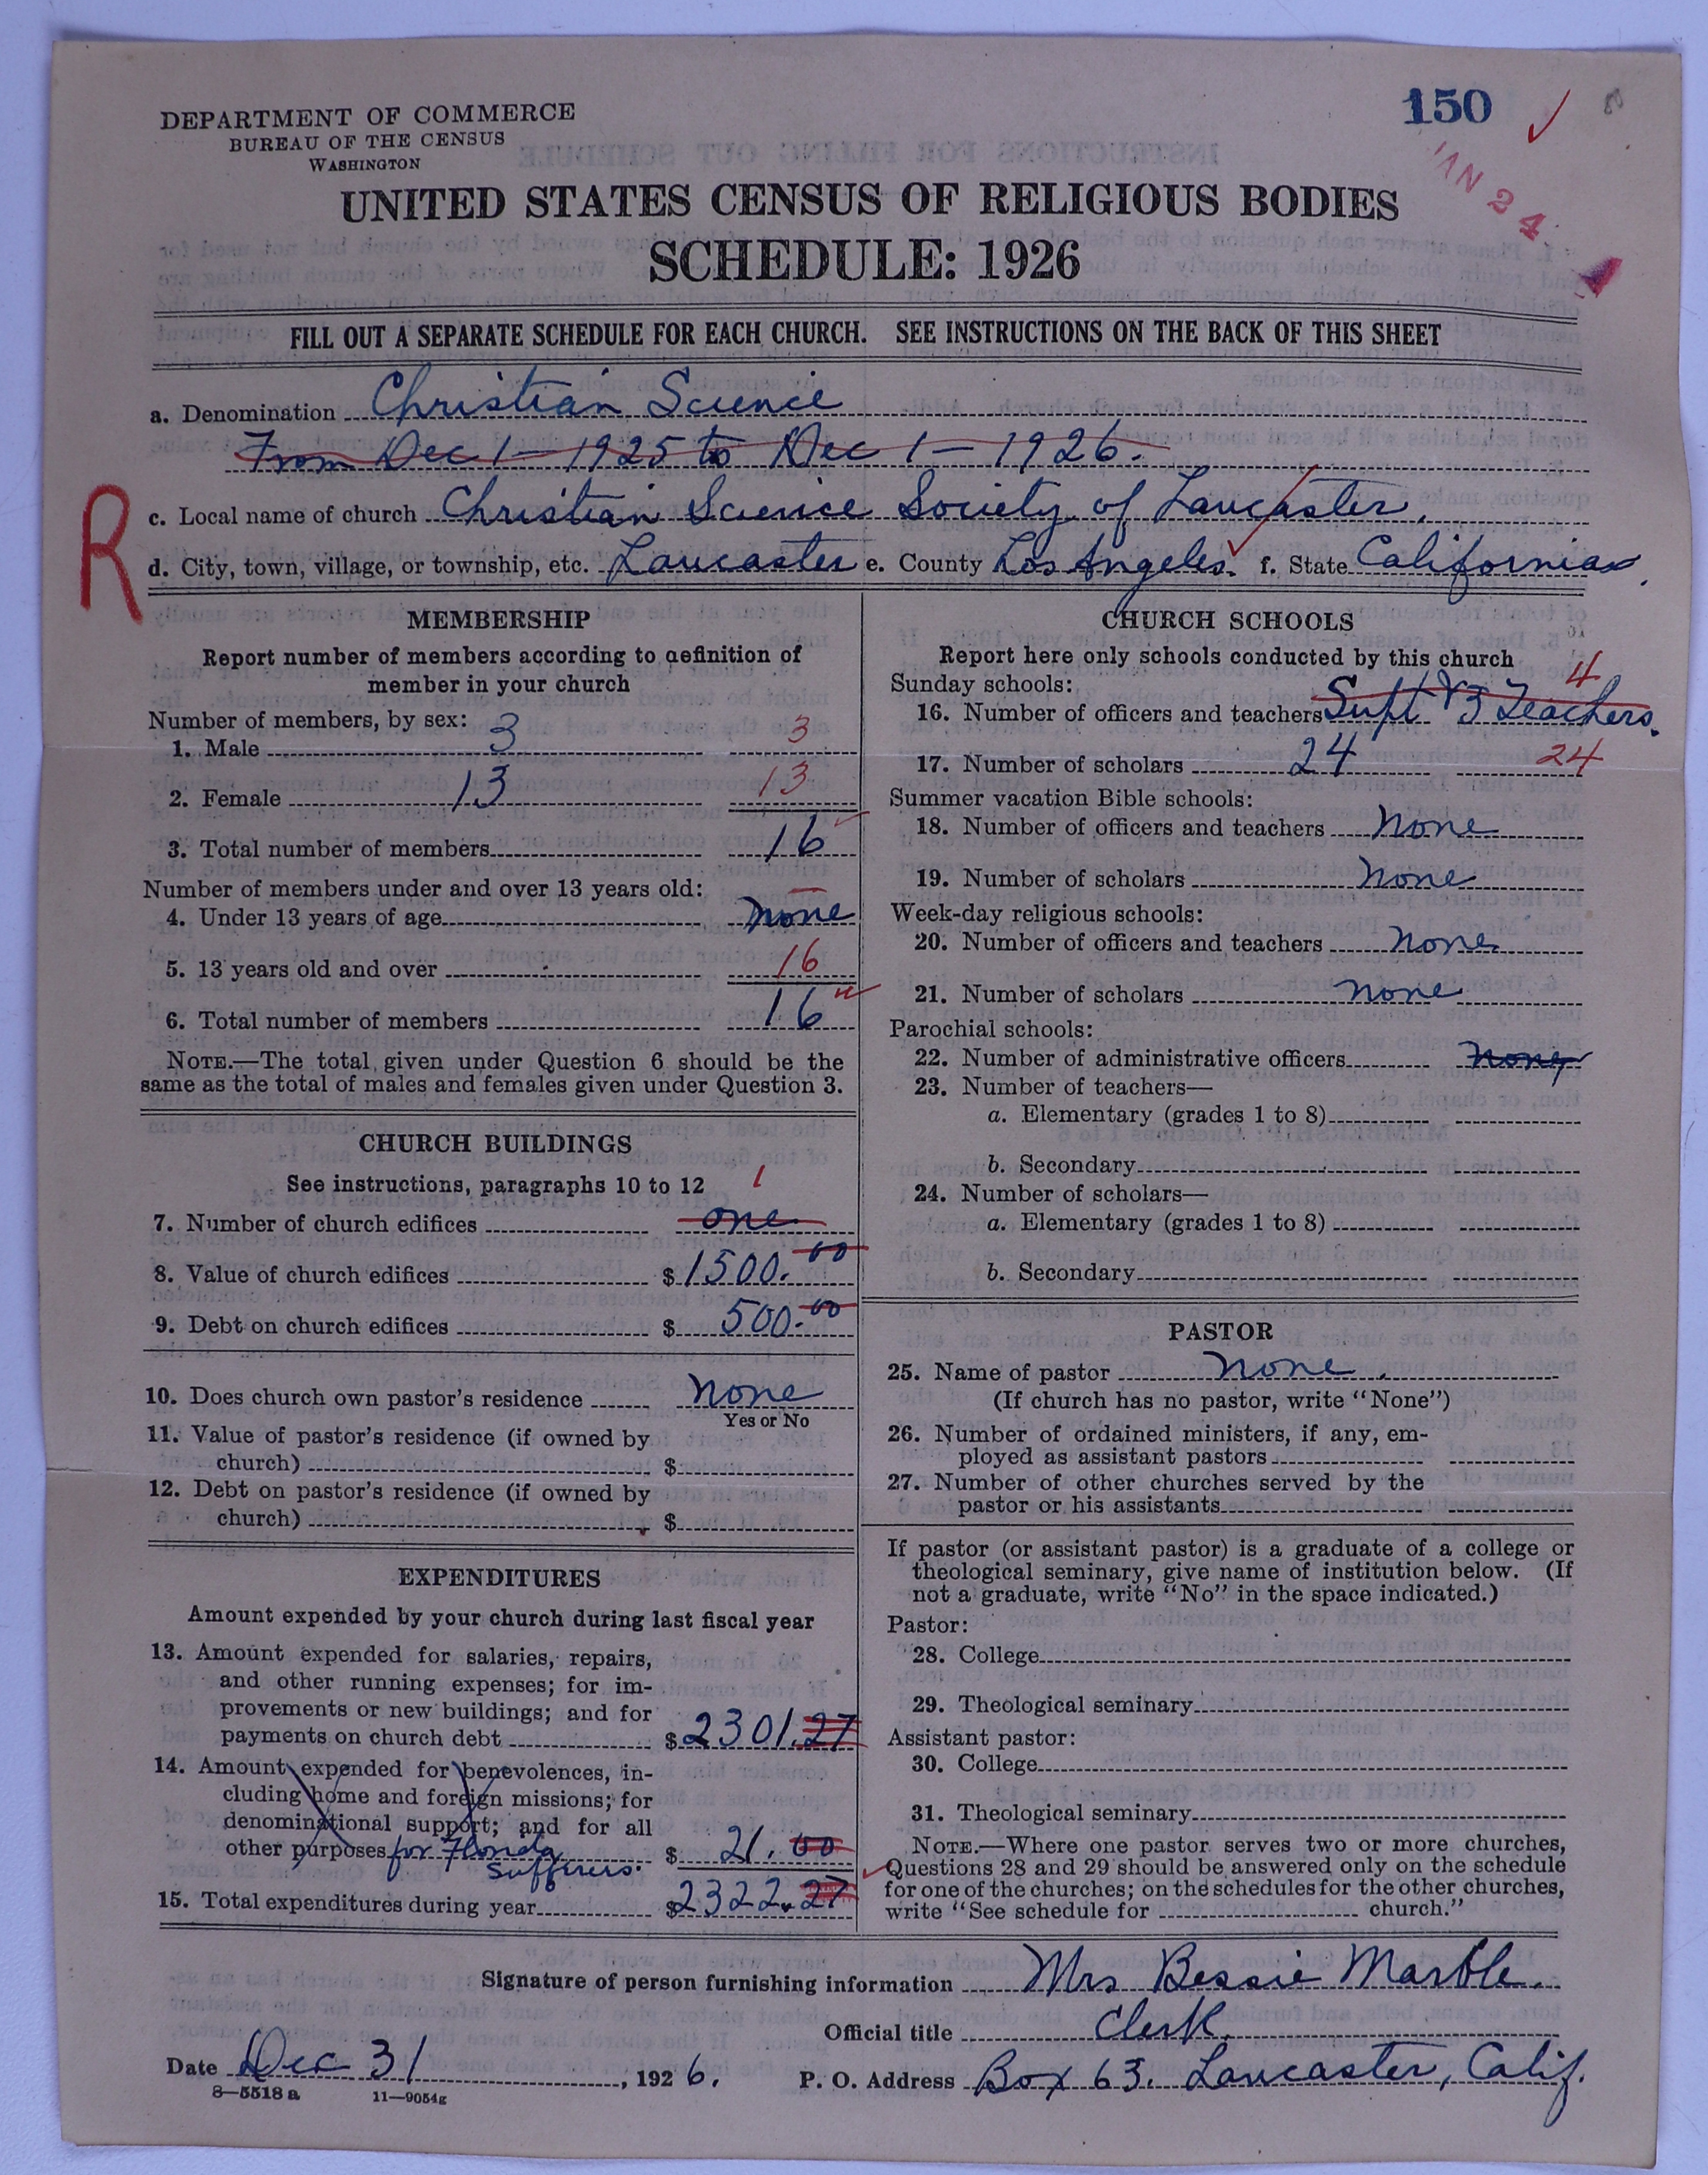 DEPARTMENT OF COMMERCE
BUREAU OF THE CENSUS
WASHINGTON
150
JAN 24
UNITED STATES CENSUS OF RELIGIOUS BODIES
SCHEDULE: 1926
FILL OUT A SEPARATE SCHEDULE FOR EACH CHURCH. SEE INSTRUCTIONS ON THE BACK OF THIS SHEET
a. Denomination Christian Science
From Dec 1 — 1925 to Dec 1 — 1926.
R
c. Local name of church Christian Science Society of Lancaster.
d. City, town, village, or township, etc. Lancaster e. County Los Angeles. f. State California.
MEMBERSHIP
Report number of members according to definition of
member in your church
Number of members, by sex:
1. Male 3 3
2. Female 13 13
3. Total number of members 16
Number of members under and over 13 years old:
4. Under 13 years of age none
5. 13 years old and over 16
6. Total number of members 16
NOTE.—The total given under Question 6 should be the
same as the total of males and females given under Question 3.
CHURCH BUILDINGS
See instructions, paragraphs 10 to 12
1
7. Number of church edifices one
8. Value of church edifices $1500.00
9. Debt on church edifices $ 500.00
10. Does church own pastor's residence none
Yes or No
11. Value of pastor's residence (if owned by
church) $
12. Debt on pastor's residence (if owned by
church) $
EXPENDITURES
Amount expended by your church during last fiscal year
13. Amount expended for salaries, repairs,
and other running expenses; for im-
provements or new buildings; and for
payments on church debt $2301.27
14. Amount expended for benevolences, in-
cluding home and foreign missions; for
denominational support; and for all
other purposes for Florida $ 21.00
sufferers.
15. Total expenditures during year $2322.27
CHURCH SCHOOLS
Report here only schools conducted by this church
Sunday schools:
4
16. Number of officers and teachers Supt & 3 Teachers.
17. Number of scholars 24 24
Summer vacation Bible schools:
18. Number of officers and teachers none
19. Number of scholars none
Week-day religious schools:
20. Number of officers and teachers none
21. Number of scholars none
Parochial schools:
22. Number of administrative officers none
23. Number of teachers—
a. Elementary (grades 1 to 8)
b. Secondary
24. Number of scholars—
a. Elementary (grades 1 to 8)
b. Secondary
PASTOR
25. Name of pastor none.
(If church has no pastor, write "None")
26. Number of ordained ministers, if any, em-
ployed as assistant pastors
27. Number of other churches served by the
pastor or his assistants
If pastor (or assistant pastor) is a graduate of a college or
theological seminary, give name of institution below. (If
not a graduate, write "No" in the space indicated.)
Pastor:
28. College
29. Theological seminary
Assistant pastor:
30. College
31. Theological seminary
NOTE.—Where one pastor serves two or more churches,
Questions 28 and 29 should be answered only on the schedule
for one of the churches; on the schedules for the other churches,
write "See schedule for church."
Signature of person furnishing information Mrs Bessie Marble.
Official title Clerk.
Date Dec 31, 1926. P. O. Address Box 63. Lancaster, Calif.
8—5518 a 11—9054g